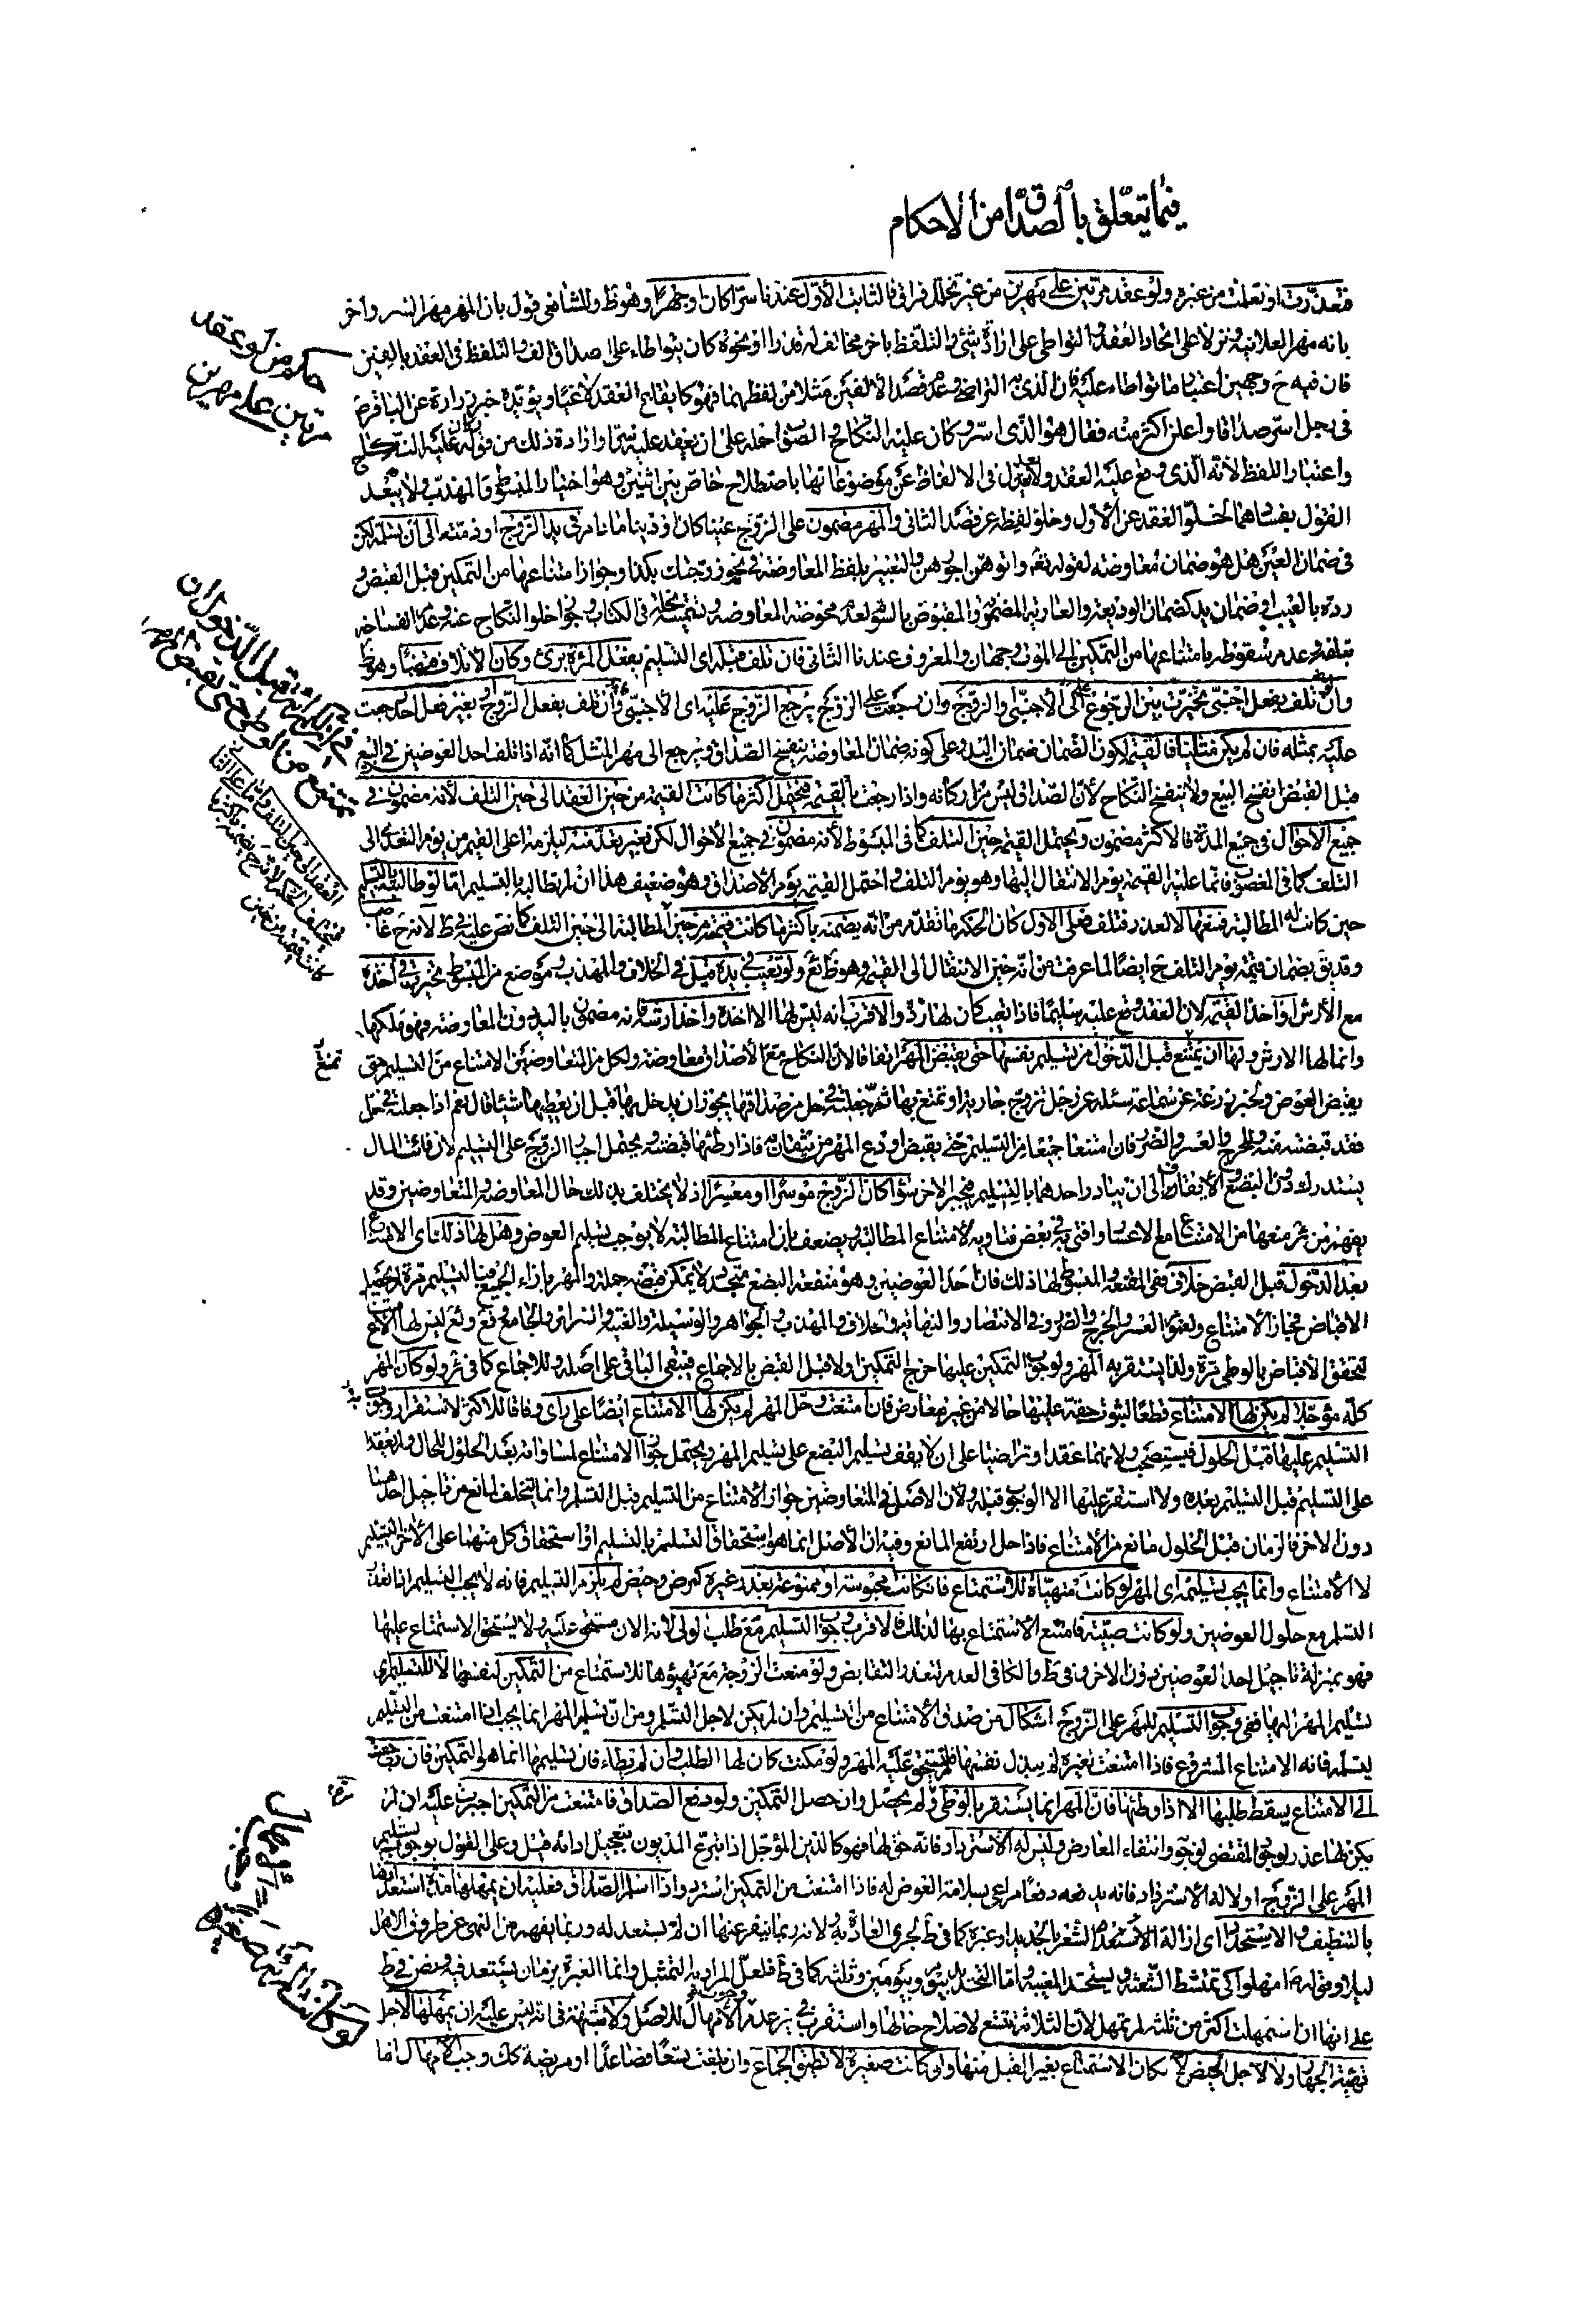 فيما يتعلق بالصداق من الاحكام
فتعذرت او تعلمت من غيره ولو عقد مرتين على مهرين من غير تخلل فراق فالثابت الاول عندنا سرا كان او جهرا وهو ظ وللشافعي قول بان المهر مهر السر واخر
بانه مهر العلانية ونزلا على اتحاد العقد والتواطى على ارادة شئ والتلفظ باخر مخالف له قدرا او نحوه كان يتواطاء على صداق الف والتلفظ في العقد بالفين
فان فيه ح وجهين اعتبار ما تواطاء عليه فان الذي به التراضي وعدم قصد الالفين مثلا من لفظهما فهو كايقاع العقد لاغيا ويؤيده خبر زرارة عن الباقر ع
في رجل اسر صداقا واعلن اكثر منه فقال هو الذى اسر وكان عليه النكاح و الصواب حمله على ان يعقد عليه سرا وارادة ذلك من قوله وكان عليه النكاح
واعتبار اللفظ لانه الذي وقع عليه العقد ولا يعدل في الالفاظ عن موضوعاتها باصطلاح خاص بين اثنين وهو اختيار المبسوط والمهذب ولا يبعد
القول بفسادهما لخلو العقد عن الاول وخلو لفظه عن قصد الثاني والمهر مضمون على الزوج عينا كان او دينا ما دام في يد الزوج او ذمته الى ان يسلمه لكن
في ضمان العين هل هو ضمان معاوضة لقوله تع واتوهن اجورهن والتعبير بلفظ المعاوضة في نحو زوجتك بكذا وجواز امتناعها من التمكين قبل القبض و
رده بالعيب او ضمان يد كضمان الوديعة والعارية المضمونة والمقبوض بالسوم لعدم محوضة المعاوضة وتسميته نحلة في الكتاب وجواز خلو النكاح عنه وعدم انفساخه
بتلفه وعدم سقوطه بامتناعها من التمكين الى الموت وجهان والمعروف عندنا الثاني فان تلف قبله اى التسليم بفعل المرأة برئ وكان الاتلاف قبضا وهو ظ
وان تلف بفعل اجنبي تخيرت بين الرجوع على الاجنبي والزوج وان رجعت على الزوج يرجع الزوج عليه اى الاجنبي وان تلف بفعل الزوج او بغير فعل احد رجعت
عليه بمثله فان لم يكن مثليا فالقيمة لكون الضمان ضمان اليد وعلى كونه ضمان المعاوضة ينفسخ الصداق ويرجع الى مهر المثل كما انه اذا تلف احد العوضين في البيع
قبل القبض انفسخ البيع ولا ينفسخ النكاح لان الصداق ليس من اركانه واذا رجعت بالقيمة فيحتمل اكثر ما كانت القيمة من حين العقد الى حين التلف لانه مضمون في
جميع الاحوال في جميع المدة فالاكثر مضمون ويحتمل القيمة حين التلف كما في المبسوط لانه مضمون في جميع الاحوال لكن بغير تعد منه ليلزمه اعلى القيم من يوم التعدي الى
التلف كما في الغصوب فانما عليه القيمة يوم الانتقال اليها وهو يوم التلف واحتمل القيمة يوم الاصداق وهو ضعيف هذا ان لم تطالبه بالتسليم اما لو طالبته بالتسليم
حين كانت له المطالبة فمنعها لا لعذر فتلف فعلى الاول كان الحكم ما تقدم من انه يضمنه باكثر ما كانت قيمته من حين المطالبة الى حين التلف كما نص عليه في ط لانه ح غاصب
وقد يق بضمان قيمة يوم التلف ح ايضا لما عرفت من انه حين الانتقال الى القيمة وهو ظ تع ولو تعيب في يده قيل في الخلاف والمهذب وموضع من المبسوط تخيرت في اخذه
مع الارش او اخذ القيمة لان العقد وقع عليه سليما فاذا تعيب كان لها رده والاقرب انه ليس لها الا اخذه واخذ ارشه لانه مضمون باليد دون المعاوضة فهو ملكها
وانما لها الارش ولها ان تمتنع قبل الدخول من تسليم نفسها حتى تقبض المهر اتفاقا لان النكاح مع الاصداق معاوضة ولكل من المتعاوضين الامتناع من التسليم حتى
يقبض العوض ولخبر زرعة عن سماعة سئله عن رجل تزوج جارية او تمتع بها ثم جعلته في حل من صداقها يجوز ان يدخل بها قبل ان يعطيها شيئا قال نعم اذا جعلته في حل
فقد قبضته منه وللحرج والعسر والضرر فان امتنعا جميعا من التسليم حتى يقبض اودع المهر من يثقان به فاذا وطئها قبضته ويحتمل اجبار الزوج على التسليم لان فائت المال
يستدرك دون البضع والايقاف الى ان يبادر احدهما بالتسليم فيجبر الاخر سواء كان الزوج موسرا او معسرا اذ لا يختلف بذلك حال المعاوضة والمتعاوضين وقد
يفهم من ئر منعها من الامتناع مع الاعسار وافتى به في بعض فتاويه لامتناع المطالبة ويضعف بان امتناع المطالبة لا يوجب تسليم العوض وهل لها ذلك اى الامتناع
بعد الدخول قبل القبض خلاف ففي المقنعة والمبسوط لها ذلك فان احد العوضين وهو منفعة البضع يتجدد لا يمكن قبضه جملة والمهر بازاء الجميع فبالتسليم مرة لم يحصل
الاقباض فجاز الامتناع ولعموم العسر والحرج والضرر وفي الانتصار والنهاية والخلاف والمهذب والجواهر والوسيلة والغنية والسرائر والجامع وفع وئع ليس لها الامتناع
لتحقق الاقباض بالوطى مرة ولذا يستقر به المهر ولوجوب التمكين عليها خرج التمكين اولا قبل القبض بالاجماع فيبقى الباقي على اصله وللاجماع كما في ئر ولو كان المهر
كله مؤجلا لم يكن لها الامتناع قطعا لثبوت حقه عليها حالا من غير معارض فان امتنعت وحل المهر لم يكن لها الامتناع ايضا على راى وفاقا للاكثر لاستقرار وجوب
التسليم عليها قبل الحلول فيستصحب ولانهما عقدا وتراضيا على ان لا يقف تسليم البضع على تسليم المهر ويحتمل جواز الامتناع لمساواته بعد الحلول للحال ولم يعقد
على التسليم قبل التسليم بعده ولا استقر عليها الا الوجوب قبله ولان الاصل في المتعاوضين جواز الامتناع من التسليم قبل التسلم وانما تخلف لمانع من تاجيل احدهما
دون الاخر فالزمان قبل الحلول مانع من الامتناع فاذا حل ارتفع المانع وفيه ان الاصل انما هو استحقاق التسليم بالتسليم او استحقاق كل منهما على الاخر التسليم
لا الامتناع وانما يجب تسليمه اى المهر لو كانت متهيأة للاستمتاع فان كانت محبوسة او ممنوعة بعذر وغيره كمرض وحيض لم يلزم التسليم فانه لا يجب التسليم اذا تعذر
التسلم مع حلول العوضين ولو كانت صبية فامتنع الاستمتاع بها لذلك فالاقرب وجوب التسليم مع طلب الولى لانه الان مستحق عليه ولا يستحق الاستمتاع عليها
فهو بمنزلة تاجيل احد العوضين دون الاخر وفي ط والكافي العدم لتعذر التقابض ولو منعت الزوجة مع تهيؤها للاستمتاع من التمكين لنفسها لا للتسليم اى
تسليم المهر اليها ففي وجوب التسليم للمهر على الزوج اشكال من صدق الامتناع من التسليم وان لم يكن لاجل التسلم ومن ان تسليم المهر انما يجب اذا امتنعت من التسليم
ليتسلمه فانه الامتناع المشروع فاذا امتنعت بغيره لم يبذل نفسها فلم تستحق عليه المهر ولو مكنت كان لها الطلب وان لم يطاء فان تسليمها انما هو التمكين فان رجعت
الى الامتناع يسقط طلبها الا اذا وطئها فان المهر انما يستقر بالوطى ولم يحصل وان حصل التمكين ولو دفع الصداق فامتنعت من التمكين اجبرت عليه ان لم
يكن لها عذر لوجود المقتضي لوجوبه وانتفاء المعارض وليس له الاسترداد فانه حق لها فهو كالدين المؤجل اذا تبرع المديون بتعجيل ادائه قبل وعلى القول بوجوب تسليم
المهر على الزوج اولا له الاسترداد فانه يدفعه دفعا مراعى بسلامة العوض له فاذا امتنعت من التمكين استرد واذا سلم الصداق فعليه ان يمهلها مدة استعدادها
بالتنظيف والاستحداد اى ازالة الشعر بالحديد او غيره كما في ط لجرى العادة به ولانه ربما ينفر عنها ان لم يستعد له وربما يفهم من النهى عن طروق الاهل
ليلا وقوله ص امهلوا كى تمتشط الشعثة وتستحد المغيبة واما التحديد بيوم ويومين وثلثة كما في ط فلعل المراد به التمثيل وانما العبرة بزمان يستعد فيه ونص في ط
على انها ان استمهلت اكثر من ثلثة لم تمهل لان الثلاثة تتسع لاصلاح حالها واستقرب في ير عدم وجوب الامهال للاصل ولا شبهة في انه ليس عليه ان يمهلها لاجل
تهيئة الجهاز ولا لاجل الحيض لامكان الاستمتاع بغير القبل منها وان كانت صغيرة لا تطيق الجماع وان بلغت تسعا فصاعدا او مريضة كك وجب الامهال اما
حكم من لو عقد
مرتين على مهرين
تمتنع من الوطى حتى تقبض المهر
تمنع